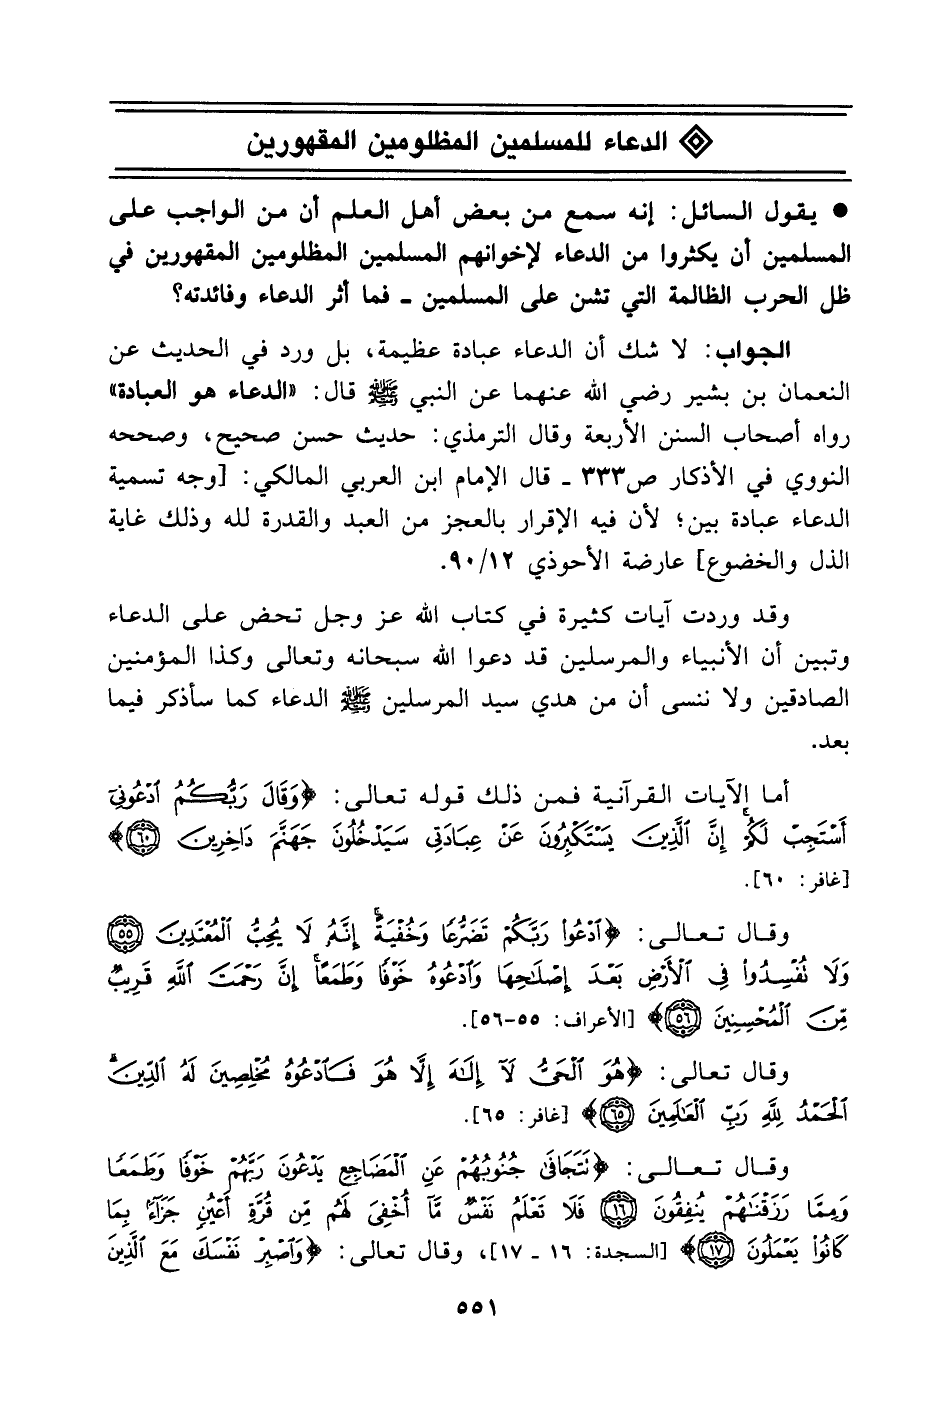 الدعاء للمسلمين المظلومين المقهورين
● يقول السائل: إنه سمع من بعض أهل العلم أن من الواجب على
المسلمين أن يكثروا من الدعاء لإخوانهم المسلمين المظلومين المقهورين في
ظل الحرب الظالمة التي تشن على المسلمين ـ فما أثر الدعاء وفائدته؟
الجواب: لا شك أن الدعاء عبادة عظيمة، بل ورد في الحديث عن
النعمان بن بشير رضي الله عنهما عن النبي ﷺ قال: «الدعاء هو العبادة»
رواه أصحاب السنن الأربعة وقال الترمذي: حديث حسن صحيح، وصححه
النووي في الأذكار ص٣٣٣ ـ قال الإمام ابن العربي المالكي: [وجه تسمية
الدعاء عبادة بين؛ لأن فيه الإقرار بالعجز من العبد والقدرة لله وذلك غاية
الذل والخضوع] عارضة الأحوذي ٩٠/١٢.
وقد وردت آيات كثيرة في كتاب الله عز وجل تحض على الدعاء
وتبين أن الأنبياء والمرسلين قد دعوا الله سبحانه وتعالى وكذا المؤمنين
الصادقين ولا ننسى أن من هدي سيد المرسلين ﷺ الدعاء كما سأذكر فيما
بعد.
أما الآيات القرآنية فمن ذلك قوله تعالى: ﴿وَقَالَ رَبُّكُمُ ٱدْعُونِىٓ
أَسْتَجِبْ لَكُمْ ۚ إِنَّ ٱلَّذِينَ يَسْتَكْبِرُونَ عَنْ عِبَادَتِى سَيَدْخُلُونَ جَهَنَّمَ دَاخِرِينَ ٦٠﴾
[غافر: ٦٠].
وقال تعالى: ﴿ٱدْعُوا۟ رَبَّكُمْ تَضَرُّعًا وَخُفْيَةً ۚ إِنَّهُۥ لَا يُحِبُّ ٱلْمُعْتَدِينَ ٥٥
وَلَا تُفْسِدُوا۟ فِى ٱلْأَرْضِ بَعْدَ إِصْلَٰحِهَا وَٱدْعُوهُ خَوْفًا وَطَمَعًا ۚ إِنَّ رَحْمَتَ ٱللَّهِ قَرِيبٌ
مِّنَ ٱلْمُحْسِنِينَ ٥٦﴾ [الأعراف: ٥٥-٥٦].
وقال تعالى: ﴿هُوَ ٱلْحَىُّ لَآ إِلَٰهَ إِلَّا هُوَ فَٱدْعُوهُ مُخْلِصِينَ لَهُ ٱلدِّينَ ۗ
ٱلْحَمْدُ لِلَّهِ رَبِّ ٱلْعَٰلَمِينَ ٦٥﴾ [غافر: ٦٥].
وقال تعالى: ﴿تَتَجَافَىٰ جُنُوبُهُمْ عَنِ ٱلْمَضَاجِعِ يَدْعُونَ رَبَّهُمْ خَوْفًا وَطَمَعًا
وَمِمَّا رَزَقْنَٰهُمْ يُنفِقُونَ ١٦ فَلَا تَعْلَمُ نَفْسٌ مَّآ أُخْفِىَ لَهُم مِّن قُرَّةِ أَعْيُنٍ جَزَآءًۢ بِمَا
كَانُوا۟ يَعْمَلُونَ ١٧﴾ [السجدة: ١٦ ـ ١٧]، وقال تعالى: ﴿وَٱصْبِرْ نَفْسَكَ مَعَ ٱلَّذِينَ
٥٥١